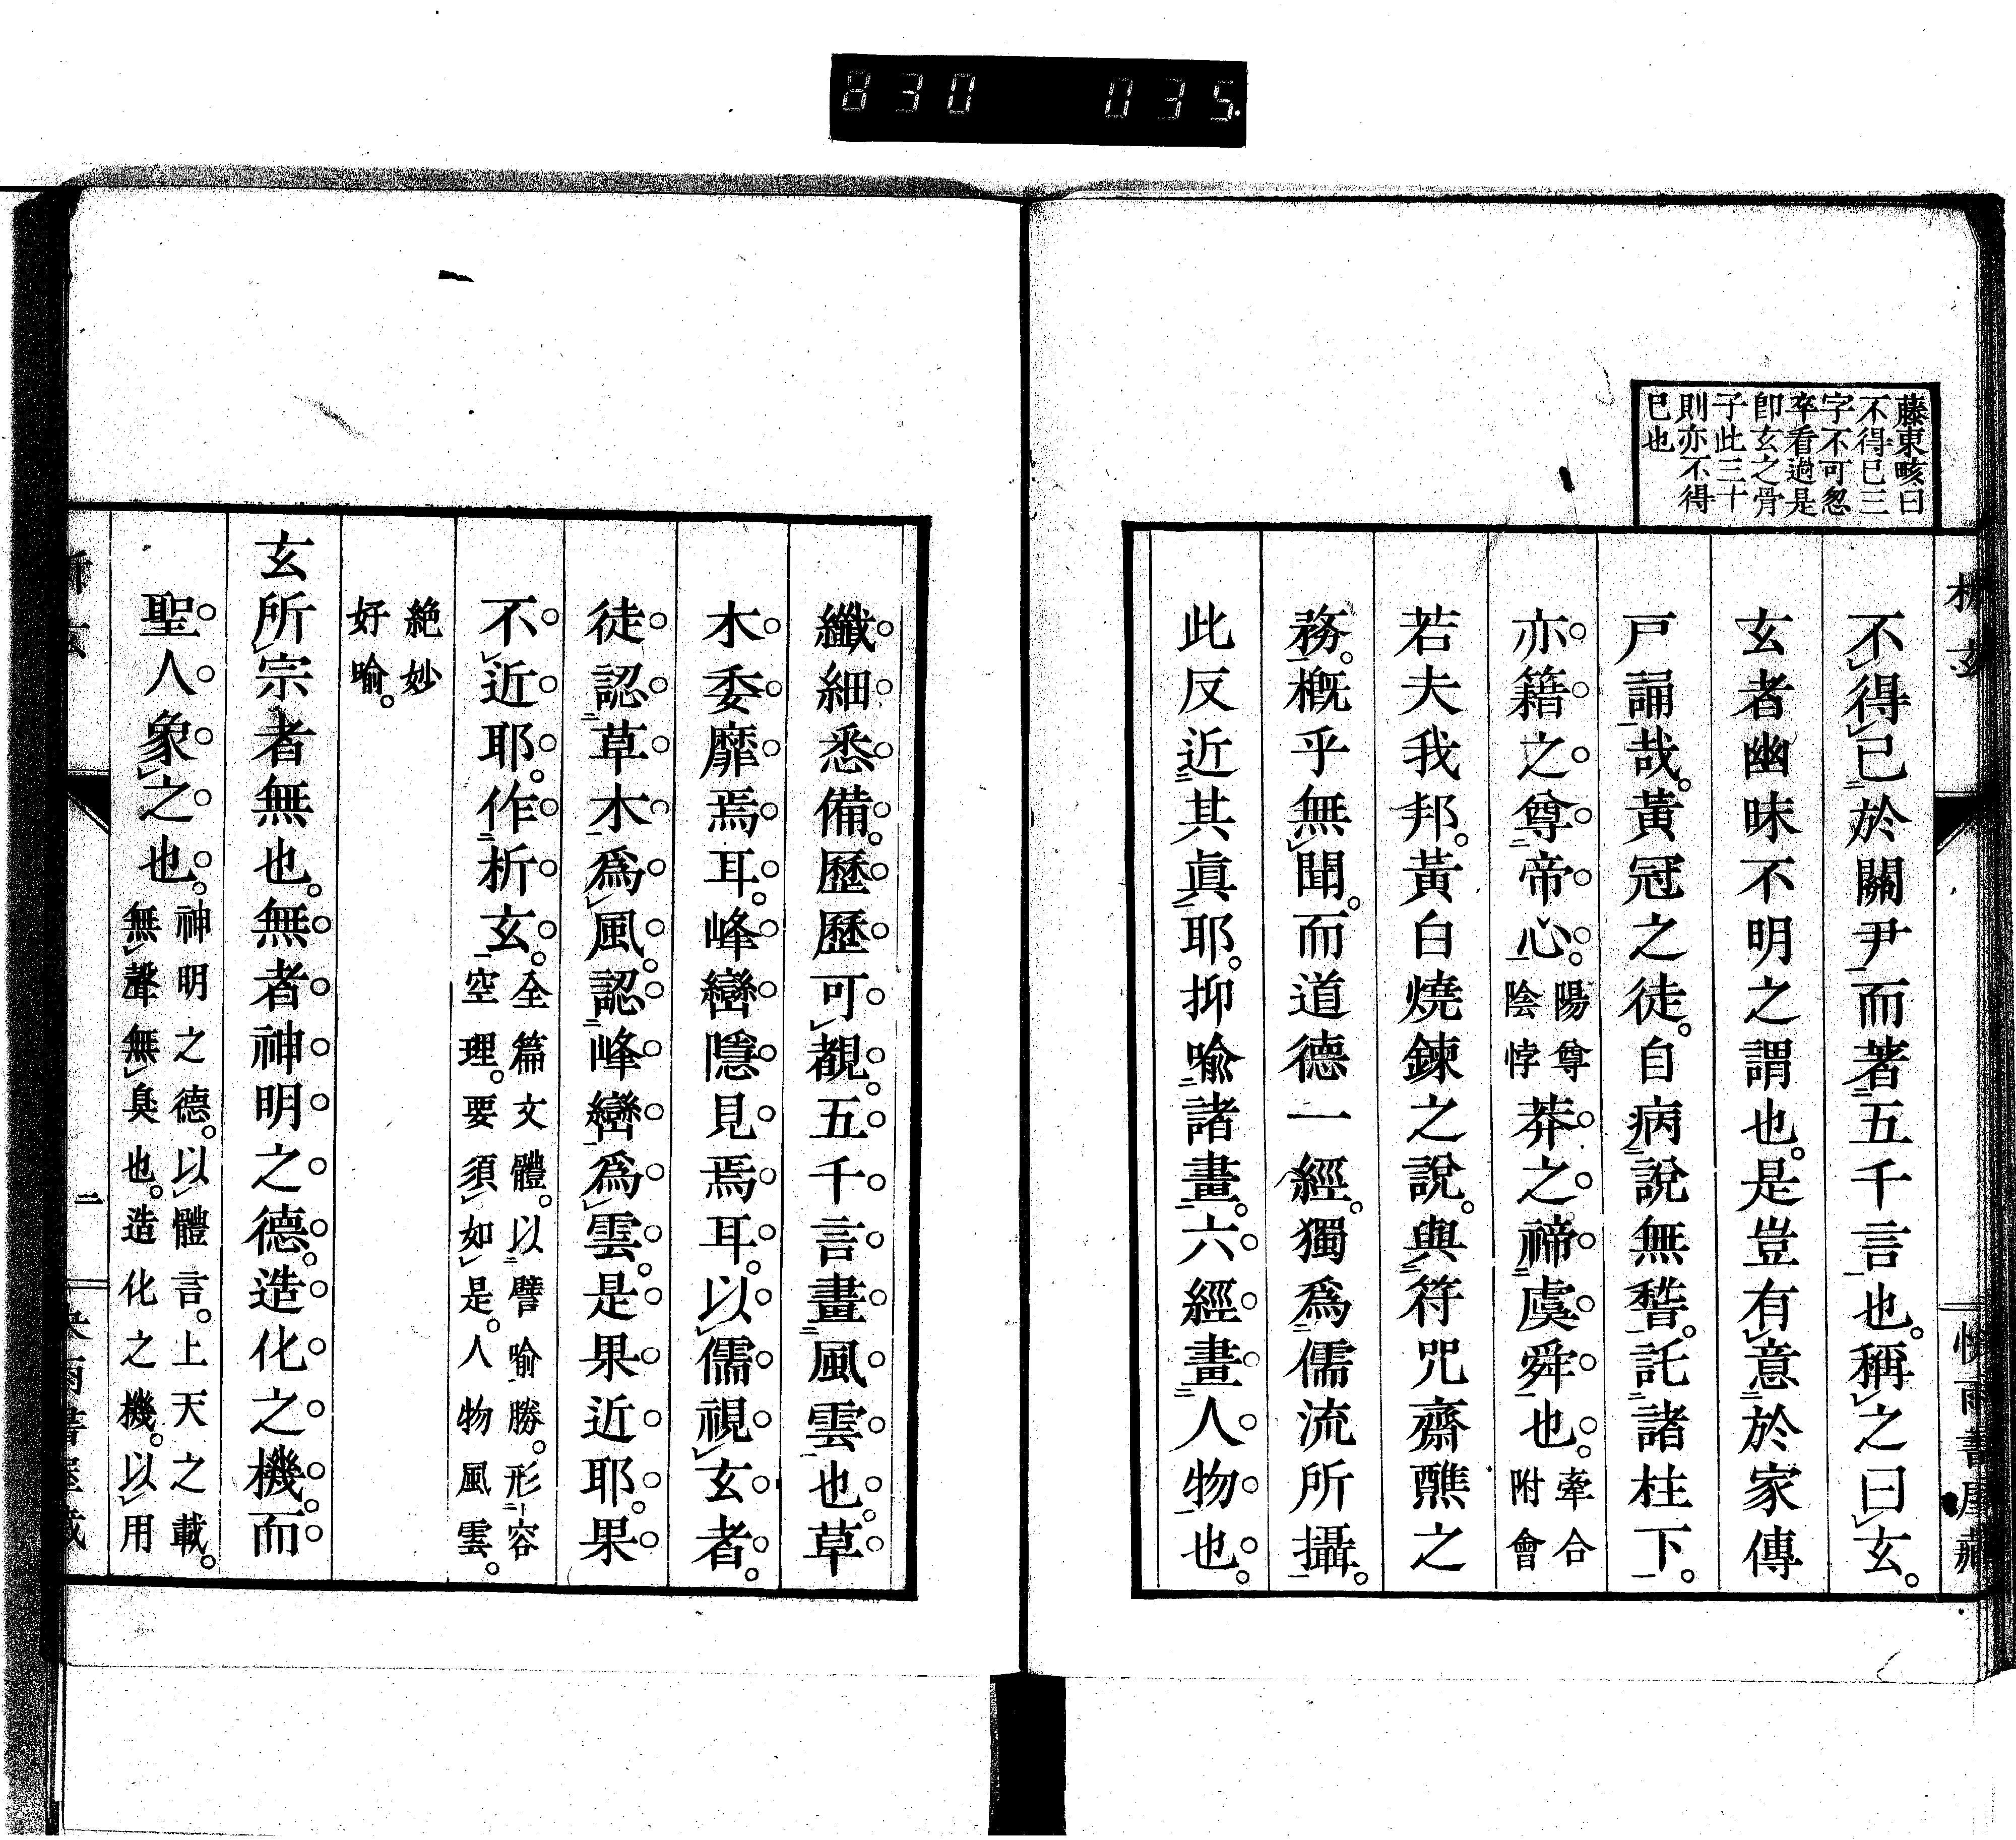 830 035.
藤東畡曰
不得已三
字不可忽
卒看過是
卽玄之骨
子此三十
則亦不得
已也
析玄
快雨書屋藏
不得已於關尹而著五千言也。稱之曰玄。
玄者幽昧不明之謂也。是豈有意於家傳
戸誦哉。黃冠之徒。自病說無稽。託諸柱下。
亦籍之尊帝心。陽尊陰悖莽之禘虞舜也。牽合附會
若夫我邦。黃白燒鍊之說。與符咒齋醮之
務。概乎無聞。而道德一經。獨爲儒流所攝。
此反近其眞耶。抑喩諸畫。六經畫人物也。
纖細悉備。歷歷可覩。五千言畫風雲也。草
木委靡焉耳。峰巒隱見焉耳。以儒視玄者。
徒認草木爲風。認峰巒爲雲。是果近耶。果
不近耶。作析玄。全篇文體。以譬喻勝。形容空理。要須如是。人物風雲。
絶妙好喻。
玄所宗者無也。無者神明之德。造化之機。而
聖人象之也。神明之德。以體言。上天之載。無聲無臭也。造化之機。以用
二